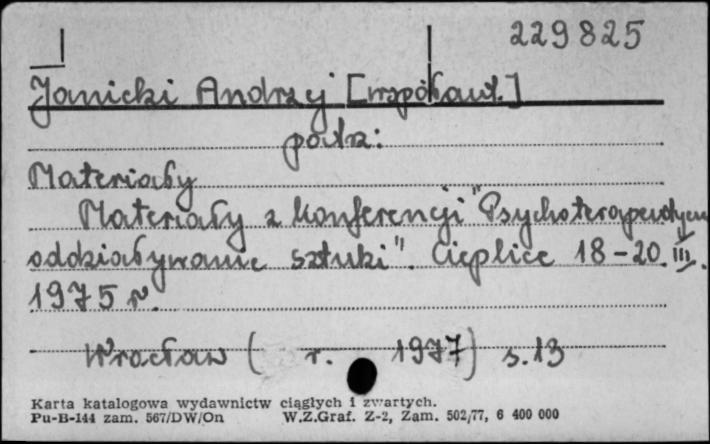 229825
Janicki Andrzej [współaut.]
patrz:
Materiały
Materiały z konferencji "Psychoterapeutycz
oddziaływanie sztuki". Cieplice 18-20 III.
1975 r.
Wrocław ( r. 1977) s. 13
Karta katalogowa wydawnictw ciągłych i zwartych.
Pu-B-144 zam. 567/DW/On W.Z.Graf. Z-2, Zam. 502/77, 6 400 000